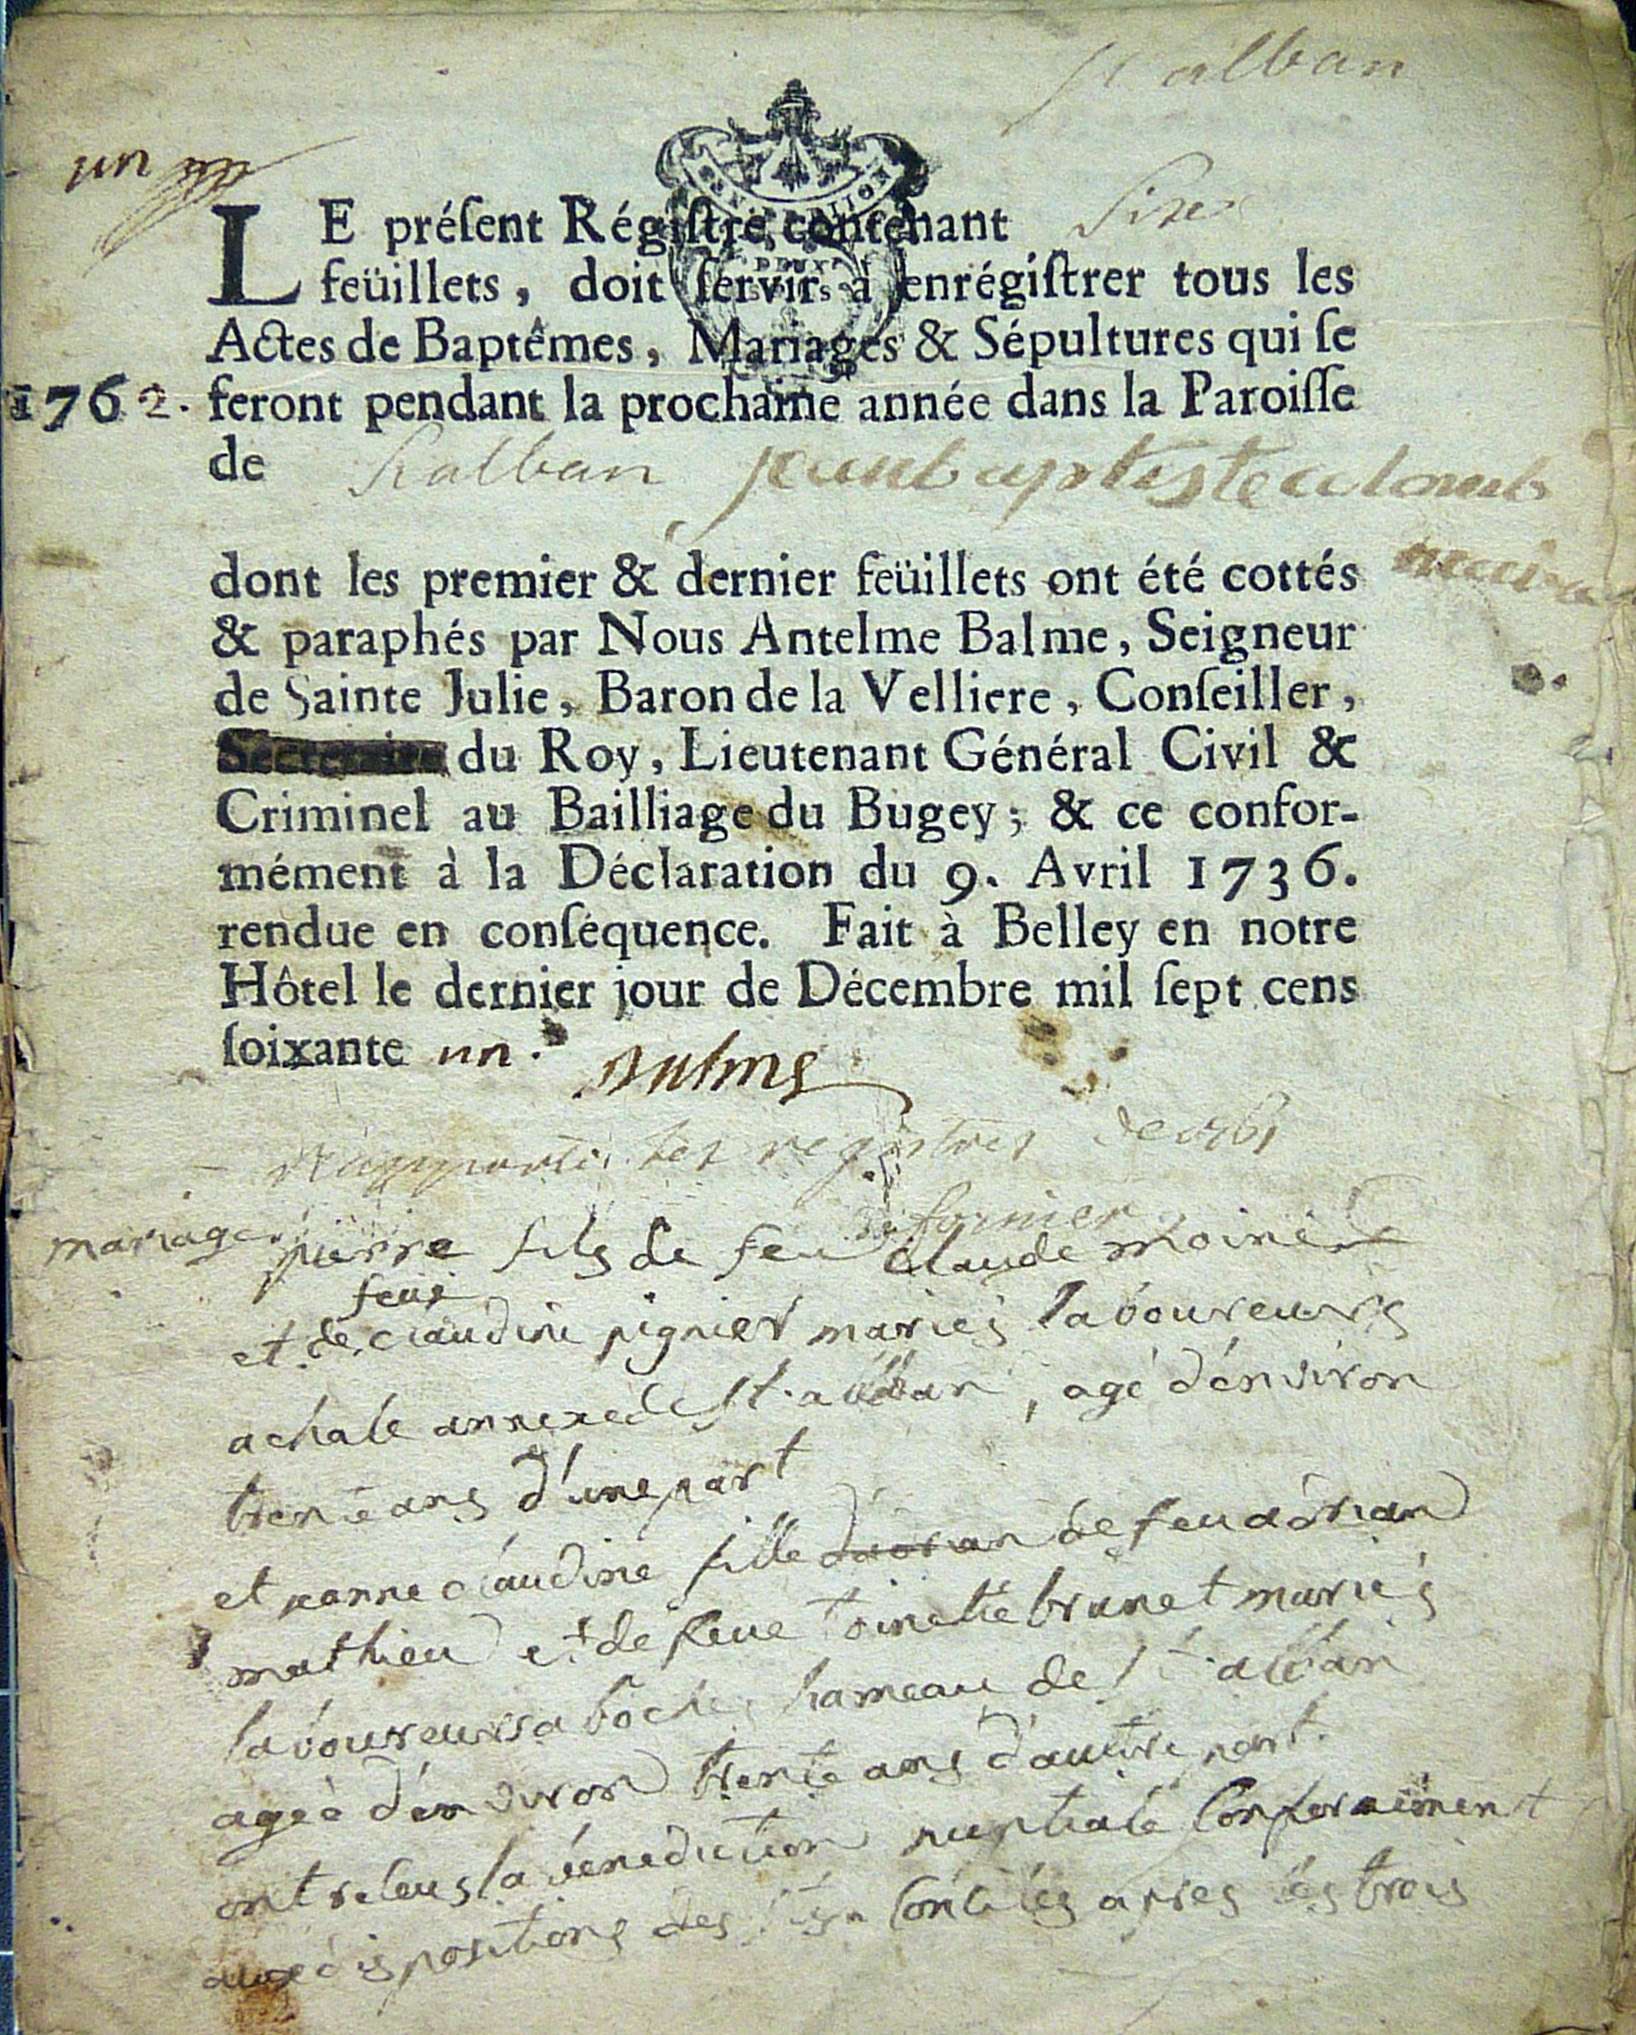 st alban
un
LE préſent Régiſtre contenant Six
feüillets, doit ſervir à enrégiſtrer tous les
Actes de Baptêmes, Mariages & Sépultures qui ſe
1762. feront pendant la prochaine année dans la Paroiſſe
de St alban jean baptiste colomb
maire
dont les premier & dernier feüillets ont été cottés
& paraphés par Nous Antelme Balme, Seigneur
de Sainte Julie, Baron de la Velliere, Conſeiller,
Secretaire du Roy, Lieutenant Général Civil &
Criminel au Bailliage du Bugey; & ce confor-
mément à la Déclaration du 9. Avril 1736.
rendue en conſéquence. Fait à Belley en notre
Hôtel le dernier jour de Décembre mil ſept cens
ſoixante un.
Balme
les registres de 1761
fornier
mariage. pierre fils de feu claude moinier
feue
et de claudine pignier mariés laboureurs
a chale annexe de st. alban, agé d'environ
trente ans d'une part
et jeanne claudine fille d'adrian de feu adrian
mathieu et de feue toinette brunet mariés
laboureurs a boche, hameau de st. alban
agée d'environ trente ans d'autre part.
ont receus la benediction nuptiale conformément
aux dispositions des sts. conciles apres les trois